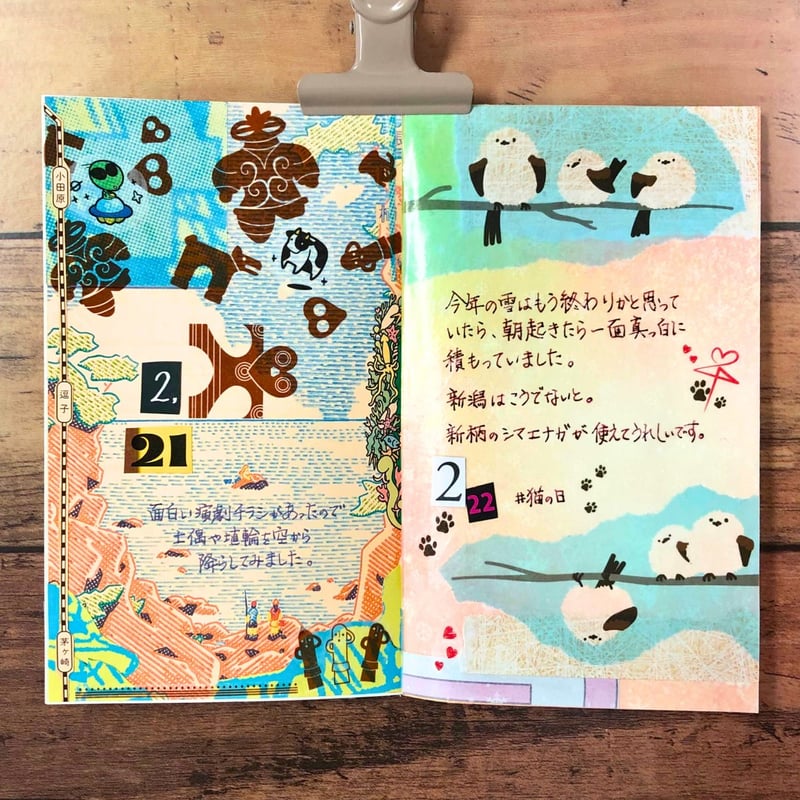 小田原
逗子
茅ヶ崎
2,
21
面白い演劇チラシがあったので
土偶や埴輪を空から
降らしてみました。
今年の雪はもう終わりかと思って
いたら、朝起きたら一面真っ白に
積もっていました。
新潟はこうでないと。
新柄のシマエナガが使えてうれしいです。
2
22
#猫の日